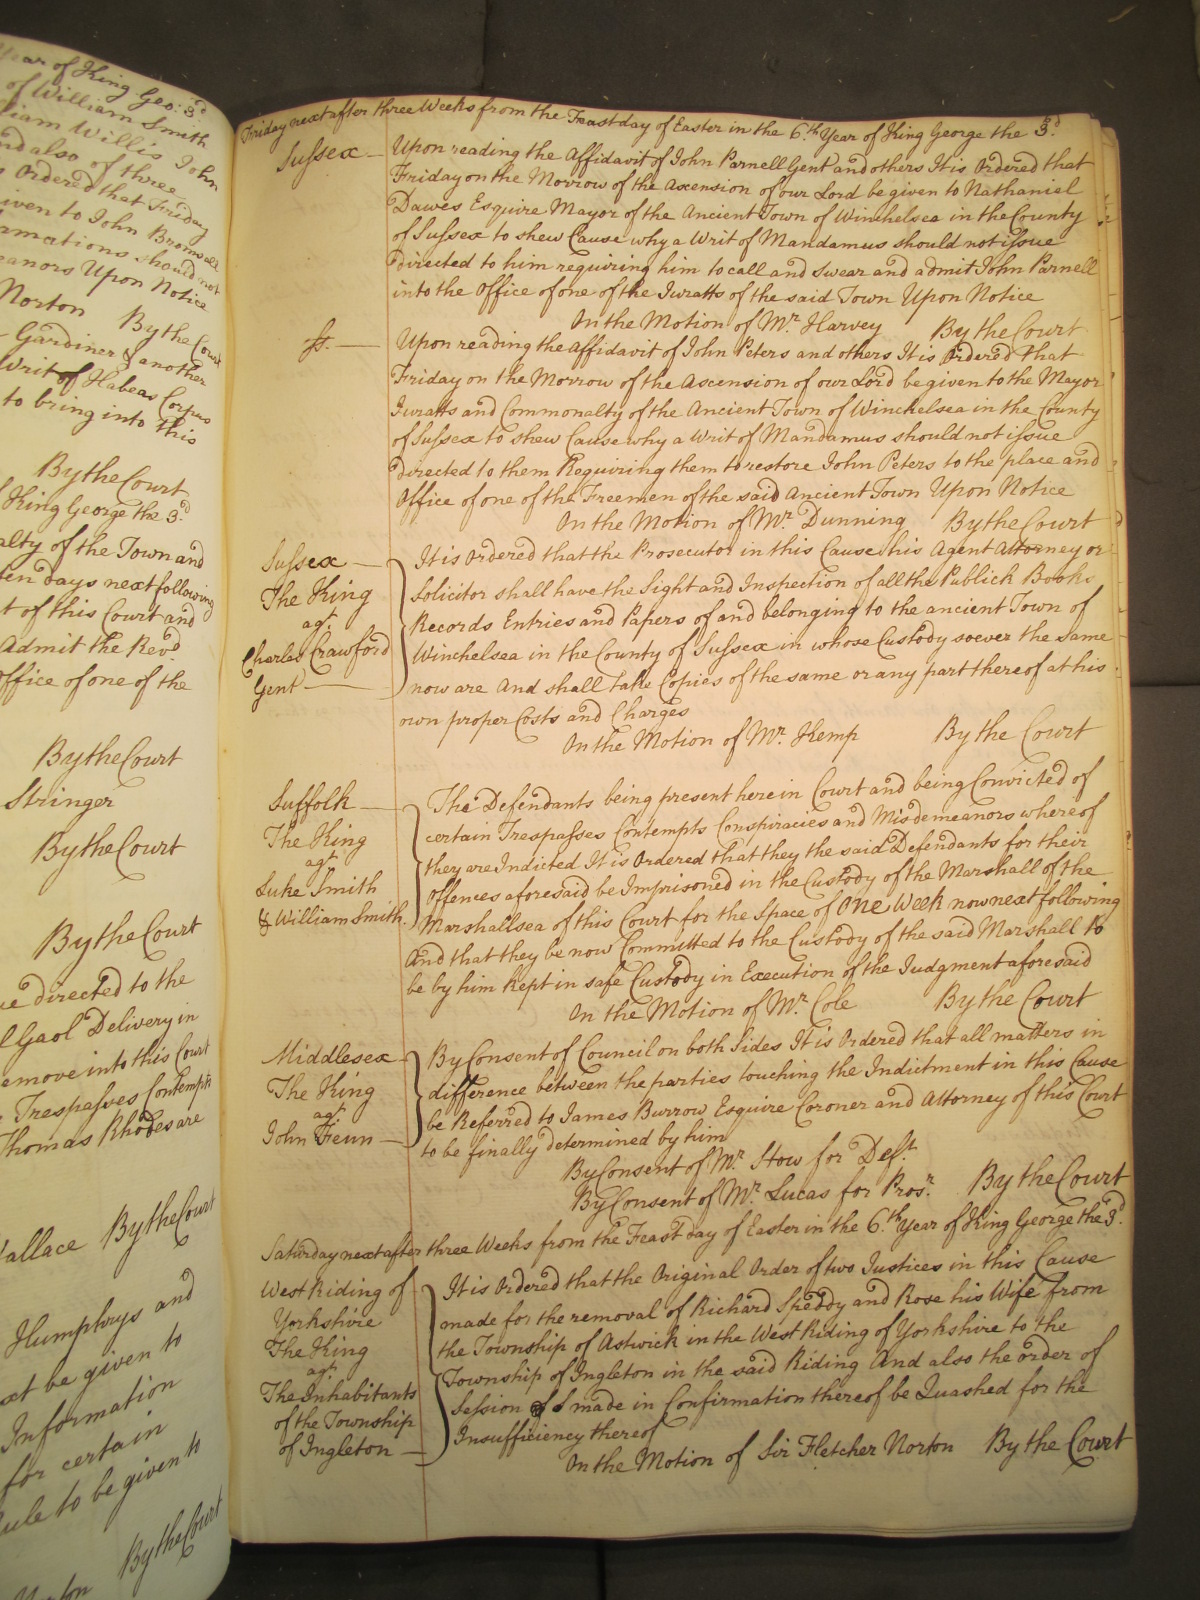 Year of King Geo: 3d
of William Smith
William Willis John
and also of three
Ordered that Friday
given to John Bromwell
Informations should not
Misdemeanors Upon Notice
Norton By the Court
Gardiner & another
Writ of Habeas Corpus
to bring into this
By the Court
King George the 3d
alty of the Town and
ten days next following
t of this Court and
Admit the Revd
Office of one of the
By the Court
Stringer
By the Court
By the Court
ue directed to the
Gaol Delivery in
remove into this Court
Trespasses Contempts
Thomas Rhodes are
Wallace By the Court
Humphrys and
next be given to
Information
for certain
Rule to be given to
By the Court
Norton
Friday next after three Weeks from the Feast day of Easter in the 6.th Year of King George the 3d
Sussex — Upon reading the Affidavit of John Parnell Gent and others It is Ordered that
Friday on the Morrow of the Ascension of our Lord be given to Nathaniel
Dawes Esquire Mayor of the Ancient Town of Winchelsea in the County
of Sussex to shew Cause why a Writ of Mandamus should not issue
directed to him requiring him to call and swear and admit John Parnell
into the Office of one of the Juratts of the said Town Upon Notice
On the Motion of Mr. Harvey By the Court
Upon reading the Affidavit of John Peters and others It is Ordered that
Friday on the Morrow of the Ascension of our Lord be given to the Mayor
Juratts and Commonalty of the Ancient Town of Winchelsea in the County
of Sussex to shew Cause why a Writ of Mandamus should not issue
directed to them Requiring them to restore John Peters to the place and
Office of one of the Freemen of the said Ancient Town Upon Notice
On the Motion of Mr. Dunning By the Court
Sussex — It is Ordered that the Prosecutor in this Cause his Agent Attorney or
The King Solicitor shall have the Sight and Inspection of all the Publick Books
agt. Records Entries and Papers of and belonging to the ancient Town of
Charles Crawford Winchelsea in the County of Sussex in whose Custody soever the same
Gent — now are And shall take Copies of the same or any part thereof at his
own proper Costs and Charges
On the Motion of Mr. Kemp By the Court
Suffolk — The Defendants being present here in Court and being Convicted of
The King certain Trespasses Contempts Conspiracies and Misdemeanors whereof
agt. they are Indicted It is Ordered that they the said Defendants for their
Luke Smith Offences aforesaid be Imprisoned in the Custody of the Marshall of the
& William Smith. Marshallsea of this Court for the Space of One Week now next following
And that they be now Committed to the Custody of the said Marshall to
be by him kept in safe Custody in Execution of the Judgment aforesaid
On the Motion of Mr. Cole By the Court
Middlesex — By Consent of Council on both Sides It is Ordered that all matters in
The King difference between the parties touching the Indictment in this Cause
agt. be Referred to James Burrow Esquire Coroner and Attorney of this Court
John Fenn — to be finally determined by him
By Consent of Mr. How for Deft.
By Consent of Mr. Lucas for Prosr. By the Court
Saturday next after three Weeks from the Feast day of Easter in the 6.th Year of King George the 3d.
West Riding of It is Ordered that the Original Order of two Justices in this Cause
Yorkshire made for the removal of Richard Speddy and Rose his Wife from
The King the Township of Astwick in the West Riding of Yorkshire to the
agt. Township of Ingleton in the said Riding And also the order of
The Inhabitants Session made in Confirmation thereof be Quashed for the
of the Township Insufficiency thereof
of Ingleton — On the Motion of Sir Fletcher Norton By the Court